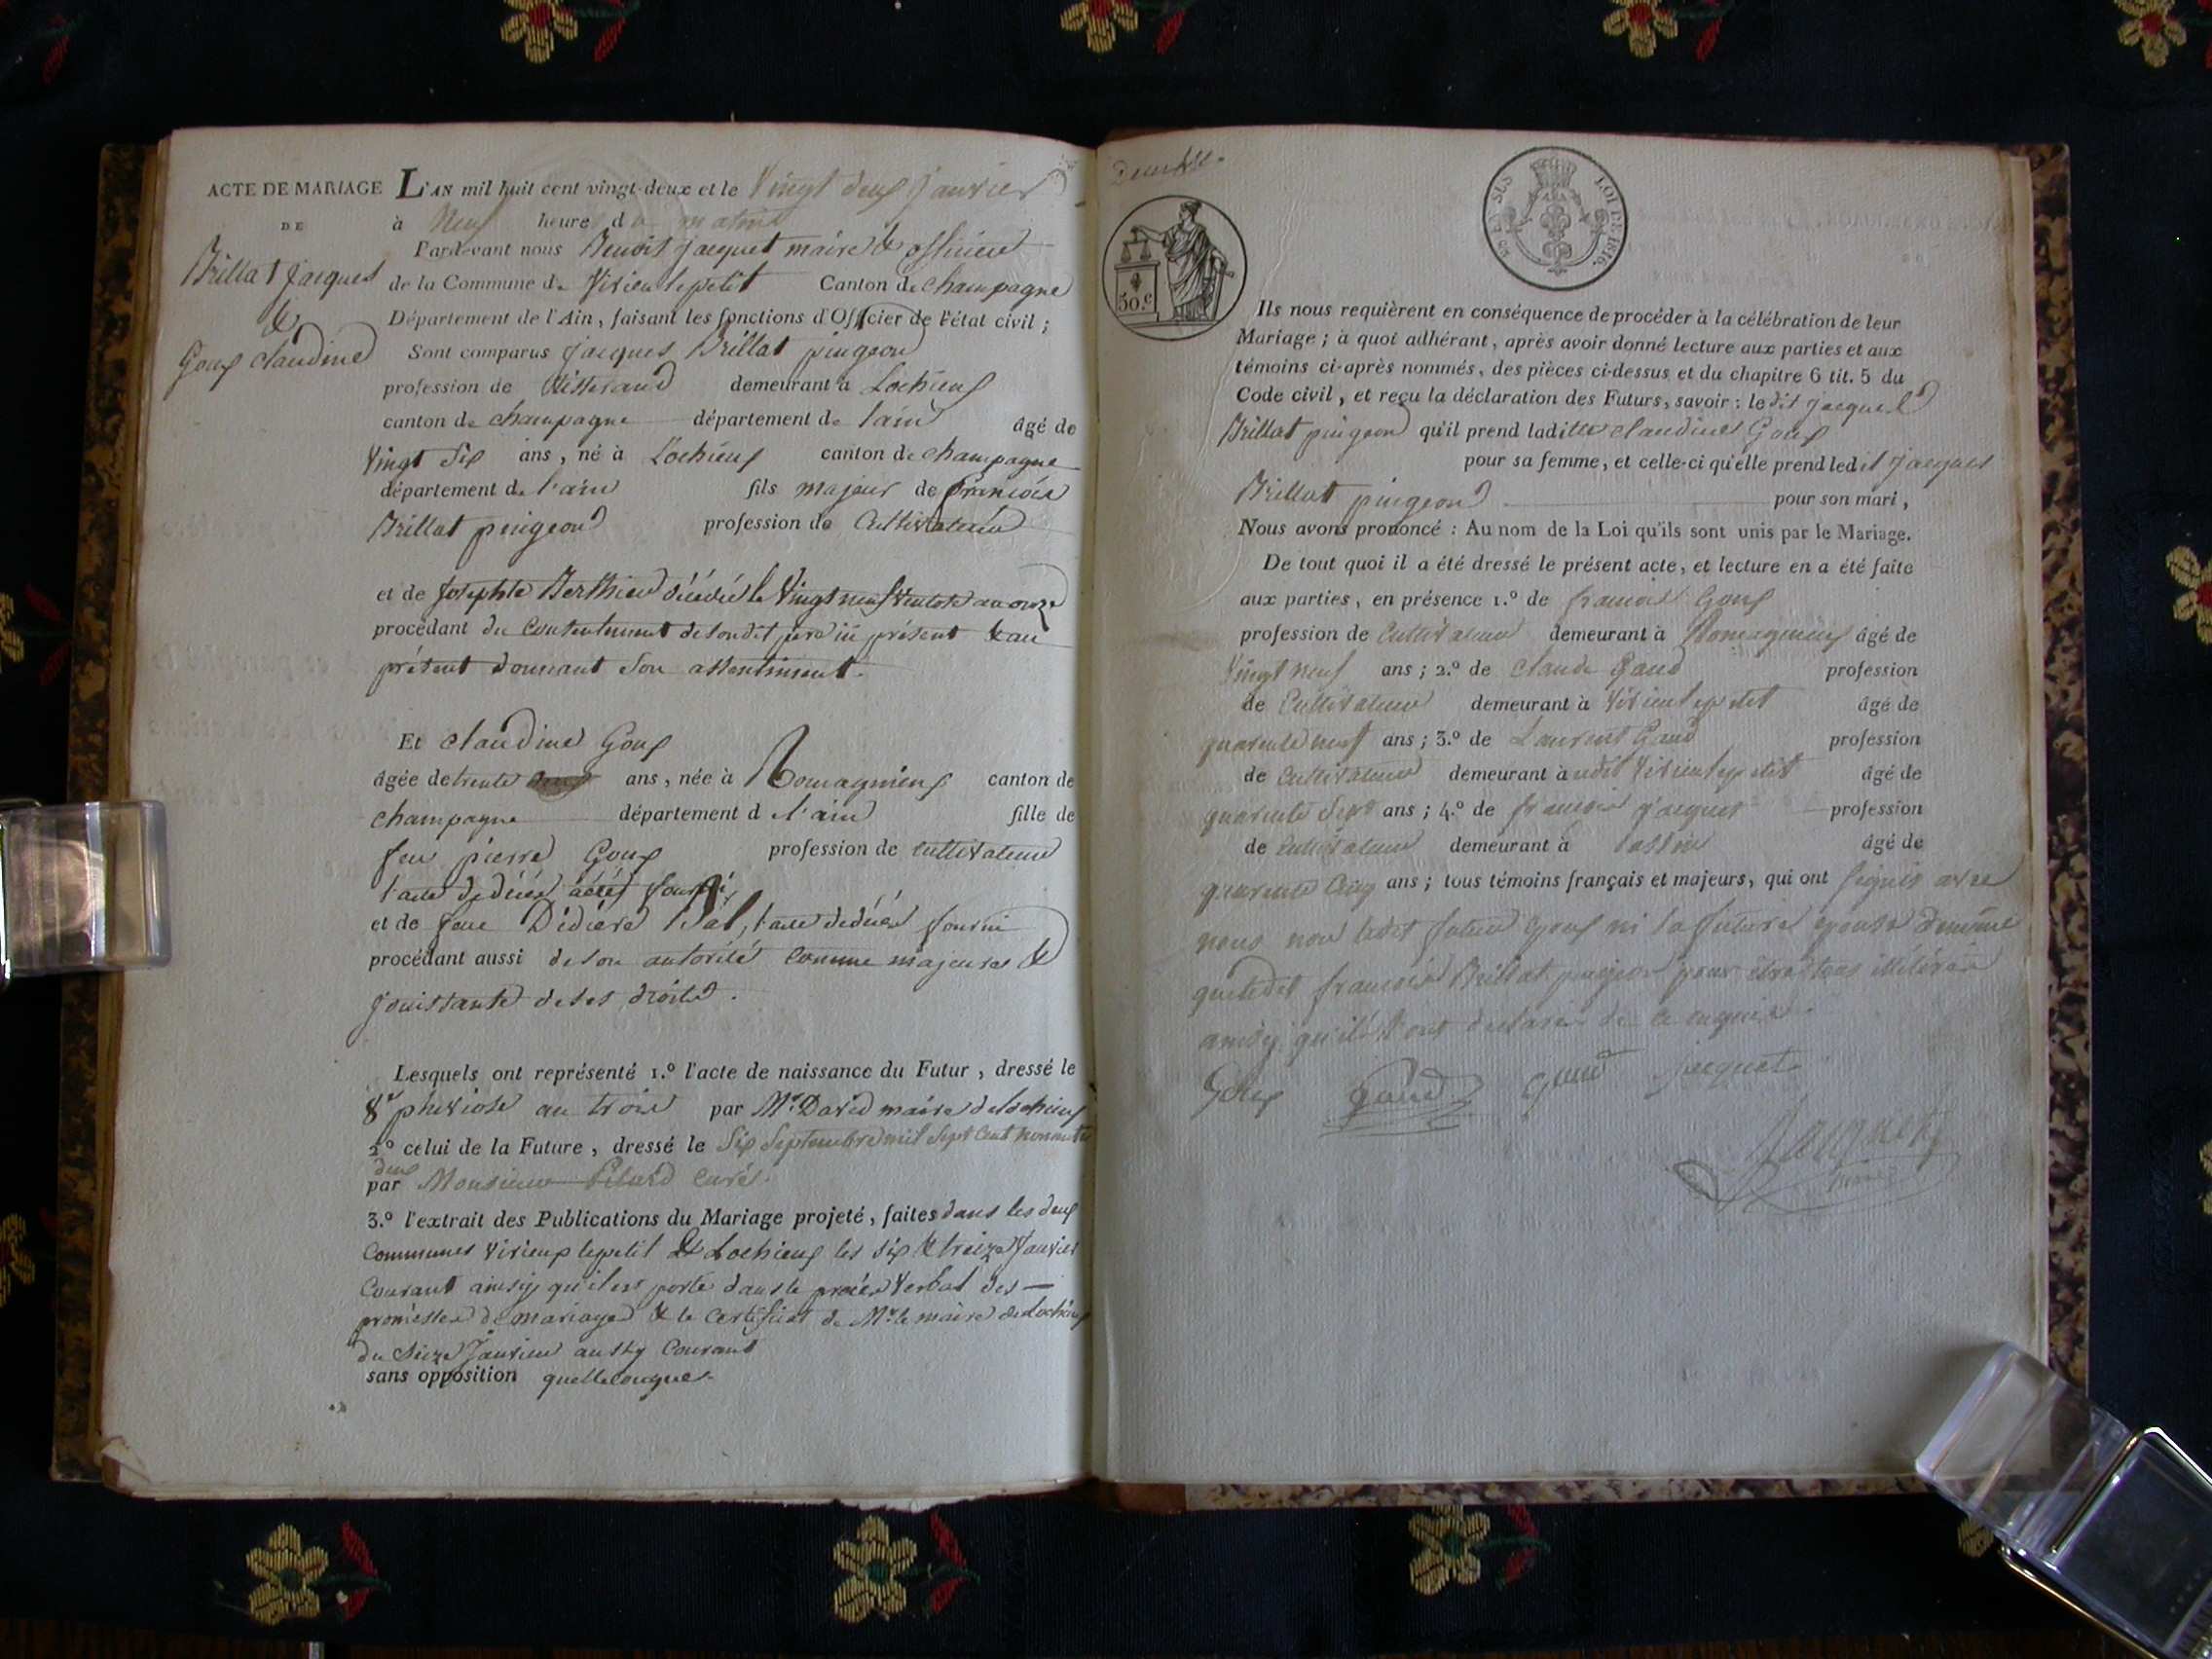 ACTE DE MARIAGE
DE
Brillat Jacques
&
Goux claudine
L'AN mil huit cent vingt-deux et le Vingt deux Janvier
à Neuf heure du matin
Pardevant nous Benoit Jacquet maire & officier
de la Commune de Virieu le petit Canton de champagne
Département de l'Ain, faisant les fonctions d'Officier de l'état civil ;
Sont comparus Jacques Brillat pingeon
profession de tisserand demeurant à Lochieux
canton de champagne département de l'ain âgé de
Vingt Six ans, né à Lochieux canton de champagne
département de l'ain fils majeur de francois
Brillat pingeon profession de Cultivateur
et de Josephte Berthier décédé le Vingt neuf Ventose an onze
procédant du Consentement de son dit père ici présent & au
présent donnant Son assentiment.
Et claudine Goux
âgée de trente ans, née à Romagnieux canton de
champagne département de l'ain fille de
feu pierre Goux profession de cultivateur
l'acte de décés fourni
et de feue Didière l'acte de décés fourni
procédant aussi de son autorité comme majeure &
Jouissante de ses droits.
Lesquels ont représenté 1.º l'acte de naissance du Futur, dressé le
8e pluviose an trois par Mr. David maire de lochieux
2.º celui de la Future, dressé le Six Septembre mil Sept Cent nonante
deux
par Monsieur curé.
3.º l'extrait des Publications du Mariage projeté, faites dans les deux
Communes Virieux le petit & Lochieux les six & treize Janvier
Courant ainsy qu'il est porté dans le procès Verbal des —
promesses de mariage & le certificat de Mr. le maire de Lochieux
du Seize Janvier aussy Courant
sans opposition quelleconque.
50.c
EN SUS
LOI DE 1816.
Ils nous requièrent en conséquence de procéder à la célébration de leur
Mariage ; à quoi adhérant, après avoir donné lecture aux parties et aux
témoins ci-après nommés, des pièces ci-dessus et du chapitre 6 tit. 5 du
Code civil, et reçu la déclaration des Futurs, savoir : le dit Jacques
Brillat pingeon qu'il prend laditte claudine Goux
pour sa femme, et celle-ci qu'elle prend ledit Jacques
Brillat pingeon pour son mari,
Nous avons prononcé : Au nom de la Loi qu'ils sont unis par le Mariage.
De tout quoi il a été dressé le présent acte, et lecture en a été faite
aux parties, en présence 1.º de francois Goux
profession de Cultivateur demeurant à Romagnieux âgé de
Vingt neuf ans ; 2.º de Claude Gaud profession
de Cultivateur demeurant à Virieu le petit âgé de
quarente neuf ans ; 3.º de Laurent Gaud profession
de Cultivateur demeurant à udit Virieu le petit âgé de
quarente Sept ans ; 4.º de francois Jacquet profession
de Cultivateur demeurant à assin âgé de
quarente Cinq ans ; tous témoins français et majeurs, qui ont Signés avec
nous non ledit futur epoux ni la future epouse de même
que ledit francois Brillat pingeon pour être tous illétérés
ainsy qu'ils l'ont déclarés de ce enquis.
Goux Gaud Gaud Jacquet
Jacquet
maire